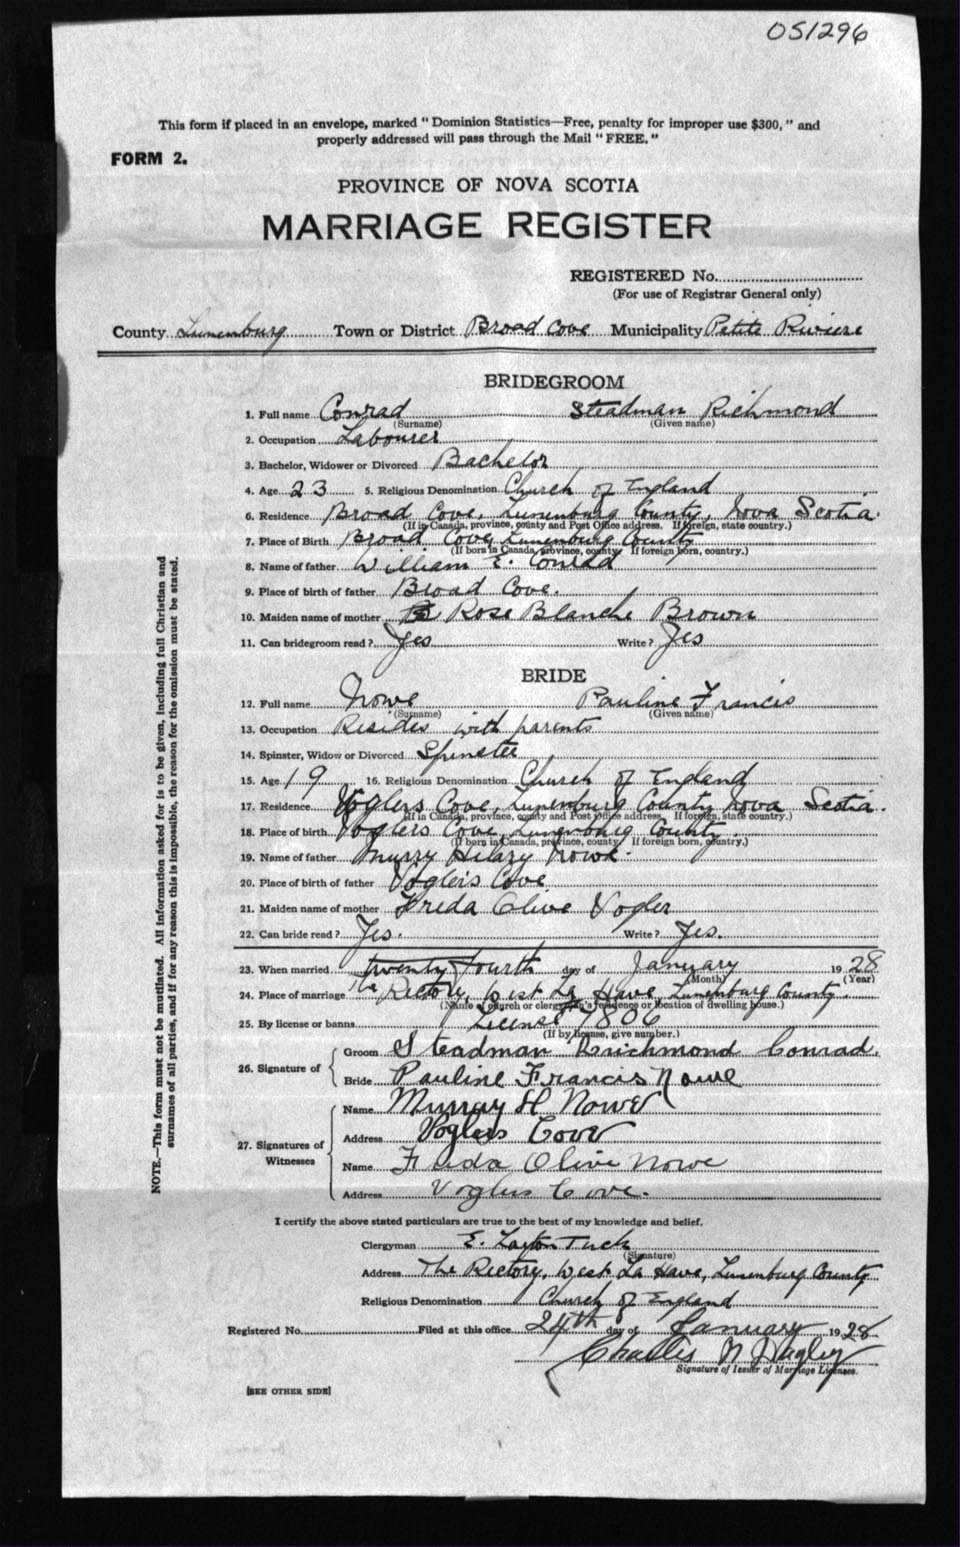 051296
This form if placed in an envelope, marked "Dominion Statistics—Free, penalty for improper use $300," and
properly addressed will pass through the Mail "FREE."
FORM 2.
PROVINCE OF NOVA SCOTIA
MARRIAGE REGISTER
REGISTERED No.
(For use of Registrar General only)
County Lunenburg Town or District Broad Cove Municipality Petite Riviere
BRIDEGROOM
1. Full name Conrad Steadman Richmond
(Surname) (Given name)
2. Occupation Labourer
3. Bachelor, Widower or Divorced Bachelor
4. Age 23 5. Religious Denomination Church of England
6. Residence Broad Cove, Lunenburg County, Nova Scotia.
(If in Canada, province, county and Post Office address. If foreign, state country.)
7. Place of Birth Broad Cove, Lunenburg County
(If born in Canada, province, county. If foreign born, country.)
8. Name of father William E. Conrad
9. Place of birth of father Broad Cove.
10. Maiden name of mother Rose Blanche Brown
11. Can bridegroom read? Yes Write? Yes
BRIDE
12. Full name Nowe Pauline Francis
(Surname) (Given name)
13. Occupation Resides with parents
14. Spinster, Widow or Divorced Spinster
15. Age 19 16. Religious Denomination Church of England
17. Residence Voglers Cove, Lunenburg County Nova Scotia.
(If in Canada, province, county and Post Office address. If foreign, state country.)
18. Place of birth Voglers Cove, Lunenburg County.
(If born in Canada, province, county. If foreign born, country.)
19. Name of father Murry Hilary Nowe.
20. Place of birth of father Voglers Cove
21. Maiden name of mother Freda Olive Vogler
22. Can bride read? Yes. Write? Yes.
23. When married twenty fourth day of January 1928
(Month) (Year)
24. Place of marriage The Rectory, West La Have, Lunenburg County.
(Name of church or clergyman's residence or location of dwelling house.)
25. By license or banns License 7806
(If by license, give number.)
26. Signature of
Groom Steadman Richmond Conrad.
Bride Pauline Francis Nowe
27. Signatures of Witnesses
Name Murray H Nowe
Address Voglers Cove
Name Freda Olive Nowe
Address Voglers Cove.
I certify the above stated particulars are true to the best of my knowledge and belief.
Clergyman E. Layton Tuck
(Signature)
Address The Rectory, West La Have, Lunenburg County
Religious Denomination Church of England
Registered No. Filed at this office 24th day of January 1928
Charles N
Signature of Issuer of Marriage Licenses.
[SEE OTHER SIDE]
NOTE.—This form must not be mutilated. All information asked for is to be given, including full Christian and
surnames of all parties, and if for any reason this is impossible, the reason for the omission must be stated.